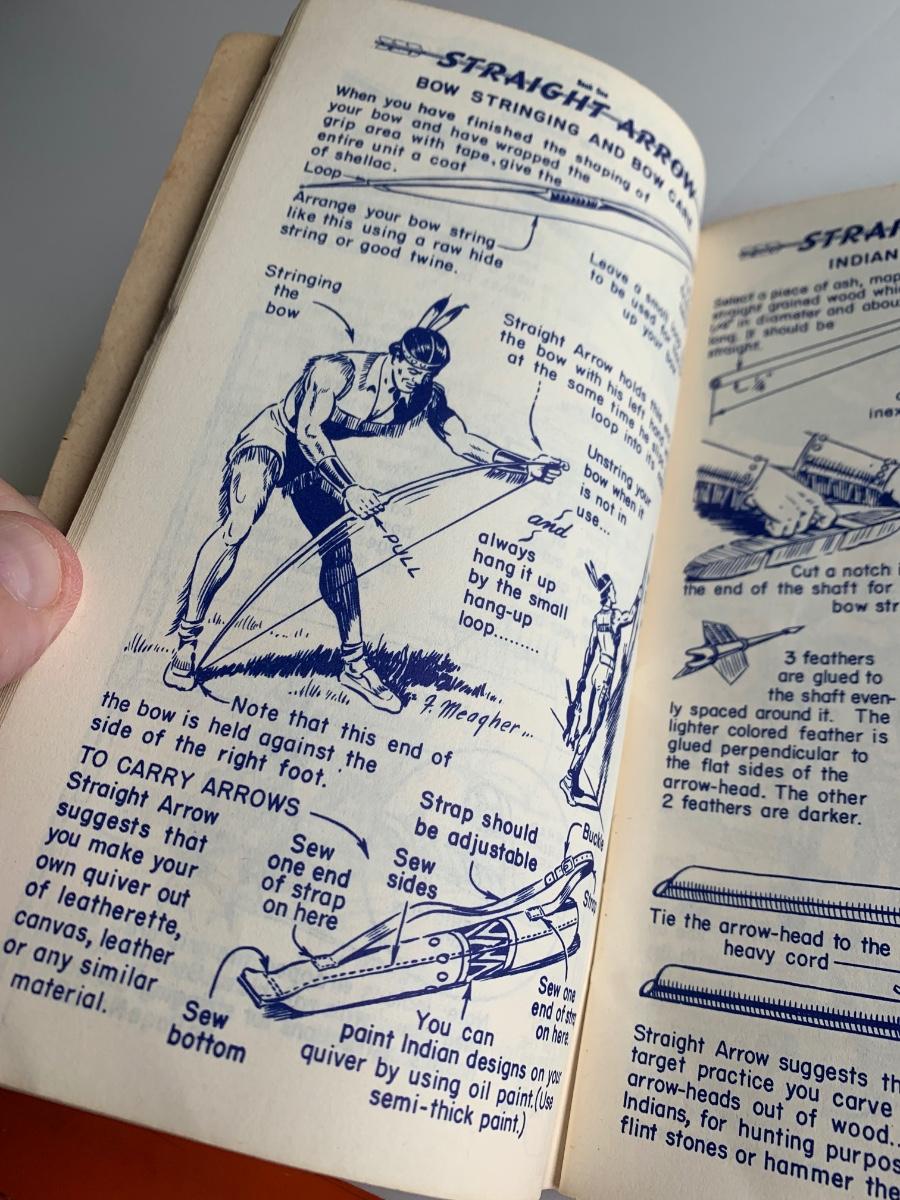 STRAIGHT ARROW
BOW STRINGING AND BOW CARE
When you have finished the shaping of
your bow and have wrapped the
grip area with tape, give the
entire unit a coat
of shellac.
Loop
Arrange your bow string
like this using a raw hide
string or good twine.
Leave a small
to be used
up your
Stringing
the
bow
Straight Arrow holds
the bow with his left
at the same time he
loop into
Unstring your
bow when it
is not in
use...
and
always
hang it up
by the small
hang-up
loop........
PULL
F. Meagher...
Note that this end of
the bow is held against the
side of the right foot.
TO CARRY ARROWS
Straight Arrow
suggests that
you make your
own quiver out
of leatherette,
canvas, leather
or any similar
material.
Sew
one end
of strap
on here
Sew
sides
Strap should
be adjustable
Buckle
Sew
bottom
You can
paint Indian designs on your
quiver by using oil paint. (Use
semi-thick paint.)
Sew one
end of strap
on here.
STRAI
INDIAN
Select a piece of ash, map
straight grained wood whi
in diameter and abou
long. It should be
straight.
inex
Cut a notch i
the end of the shaft for
bow str
3 feathers
are glued to
the shaft even-
ly spaced around it. The
lighter colored feather is
glued perpendicular to
the flat sides of the
arrow-head. The other
2 feathers are darker.
Tie the arrow-head to the
heavy cord
Straight Arrow suggests th
target practice you carve
arrow-heads out of wood..
Indians, for hunting purpos
flint stones or hammer the